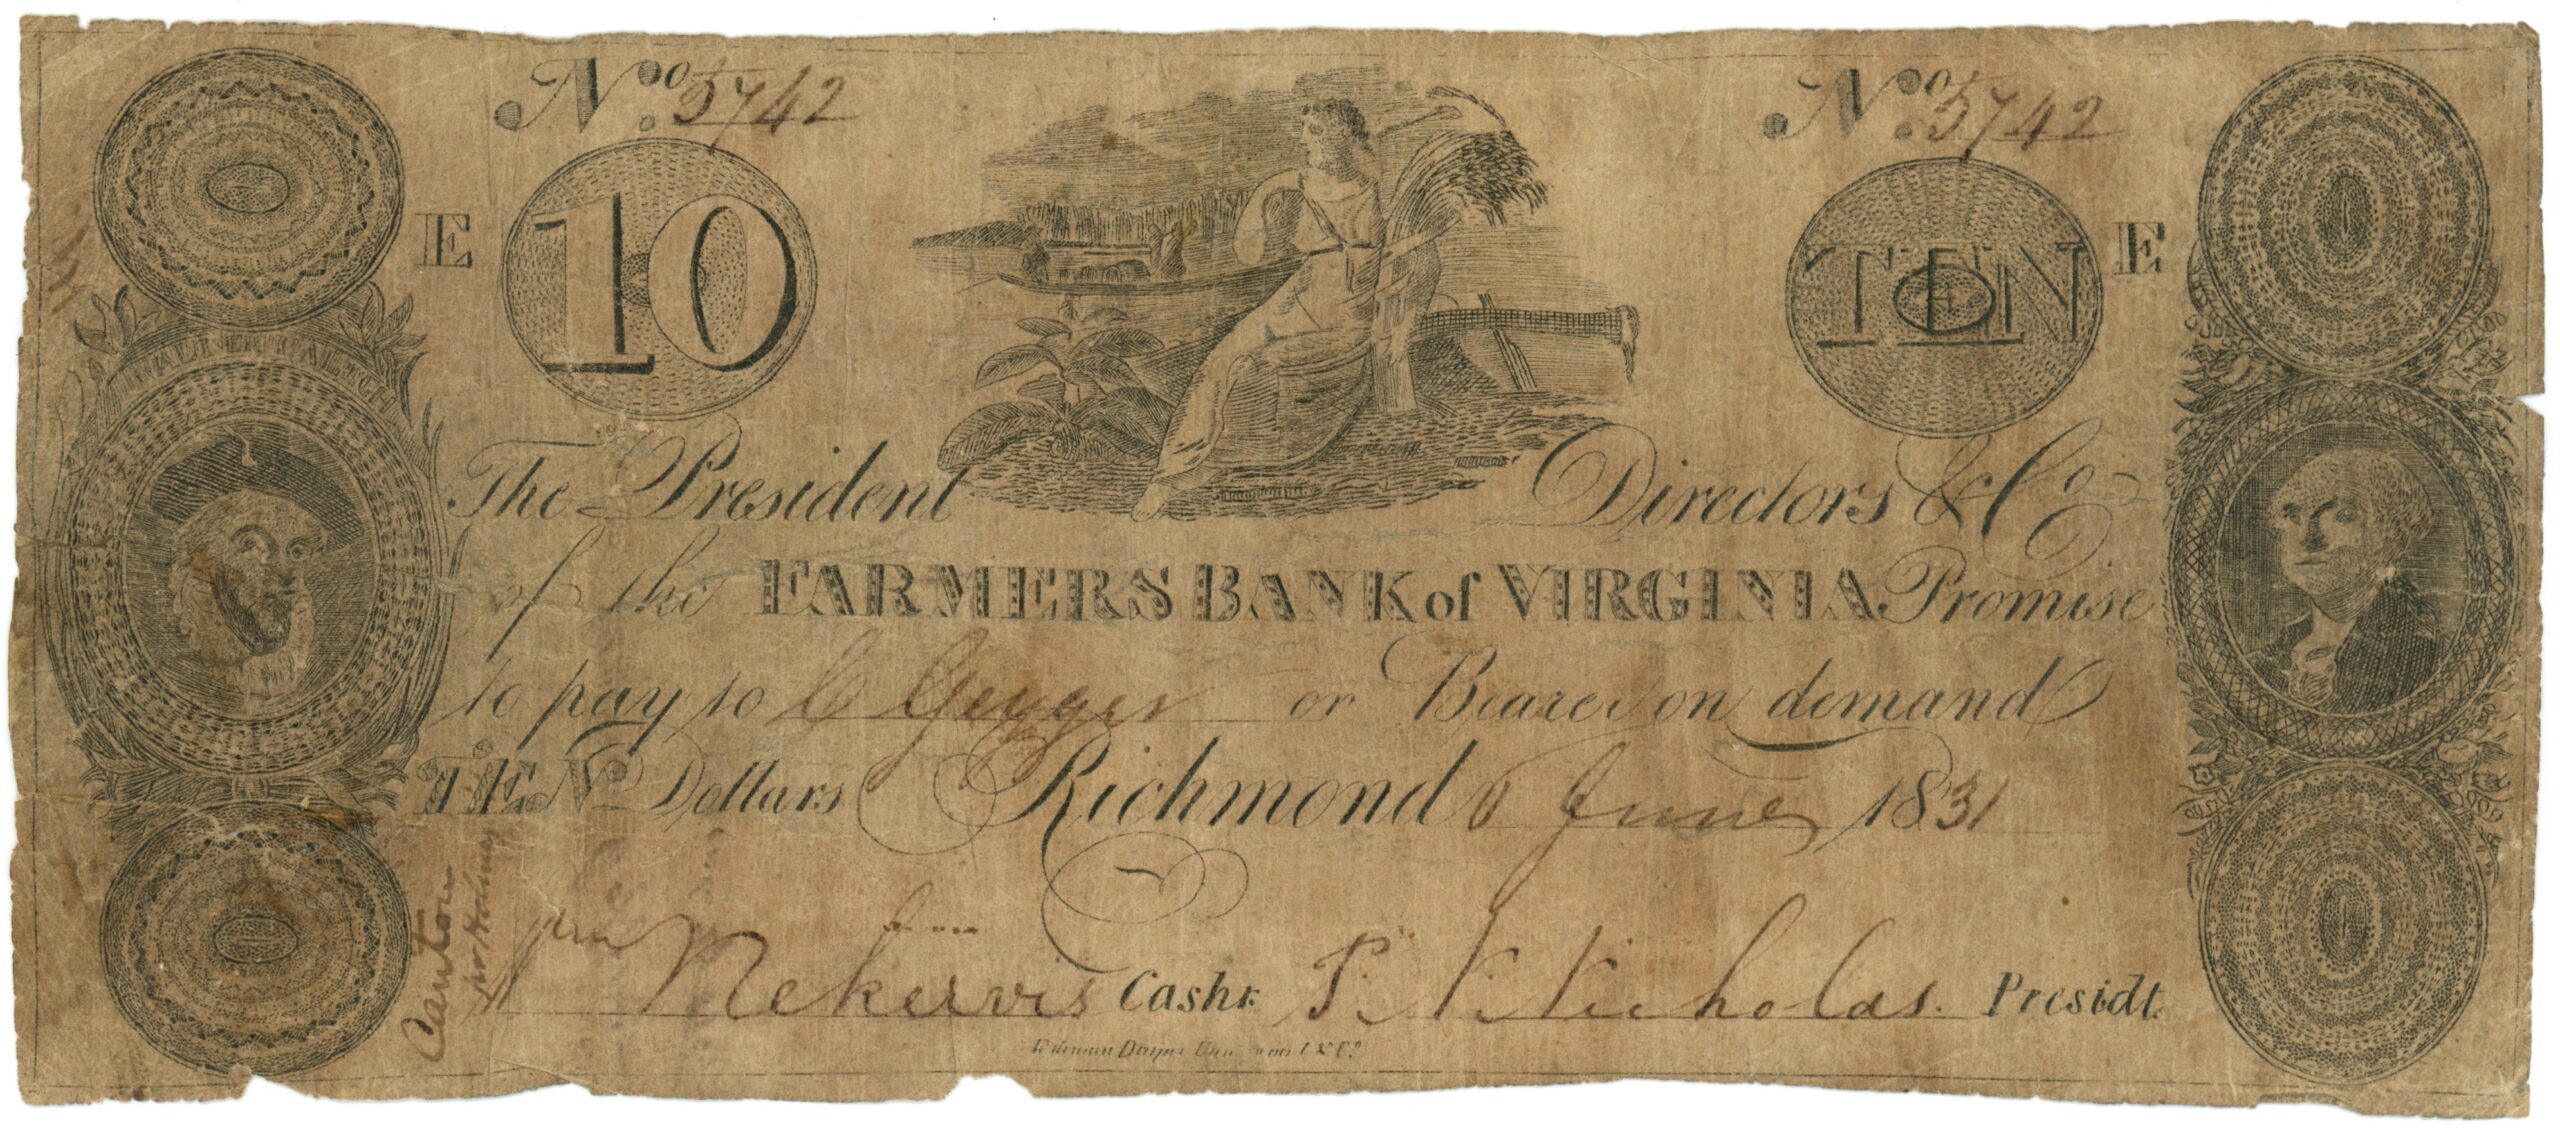 No. 5742
No. 5742
E
10
TEN
E
The President Directors & Co
of the FARMERS BANK of VIRGINIA Promise
to pay to C Geyger or Bearer on demand
TEN Dollars Richmond 6 June 1831
Wm Nekervis Cashr. P. N. Nicholas. Presidt.
Canton